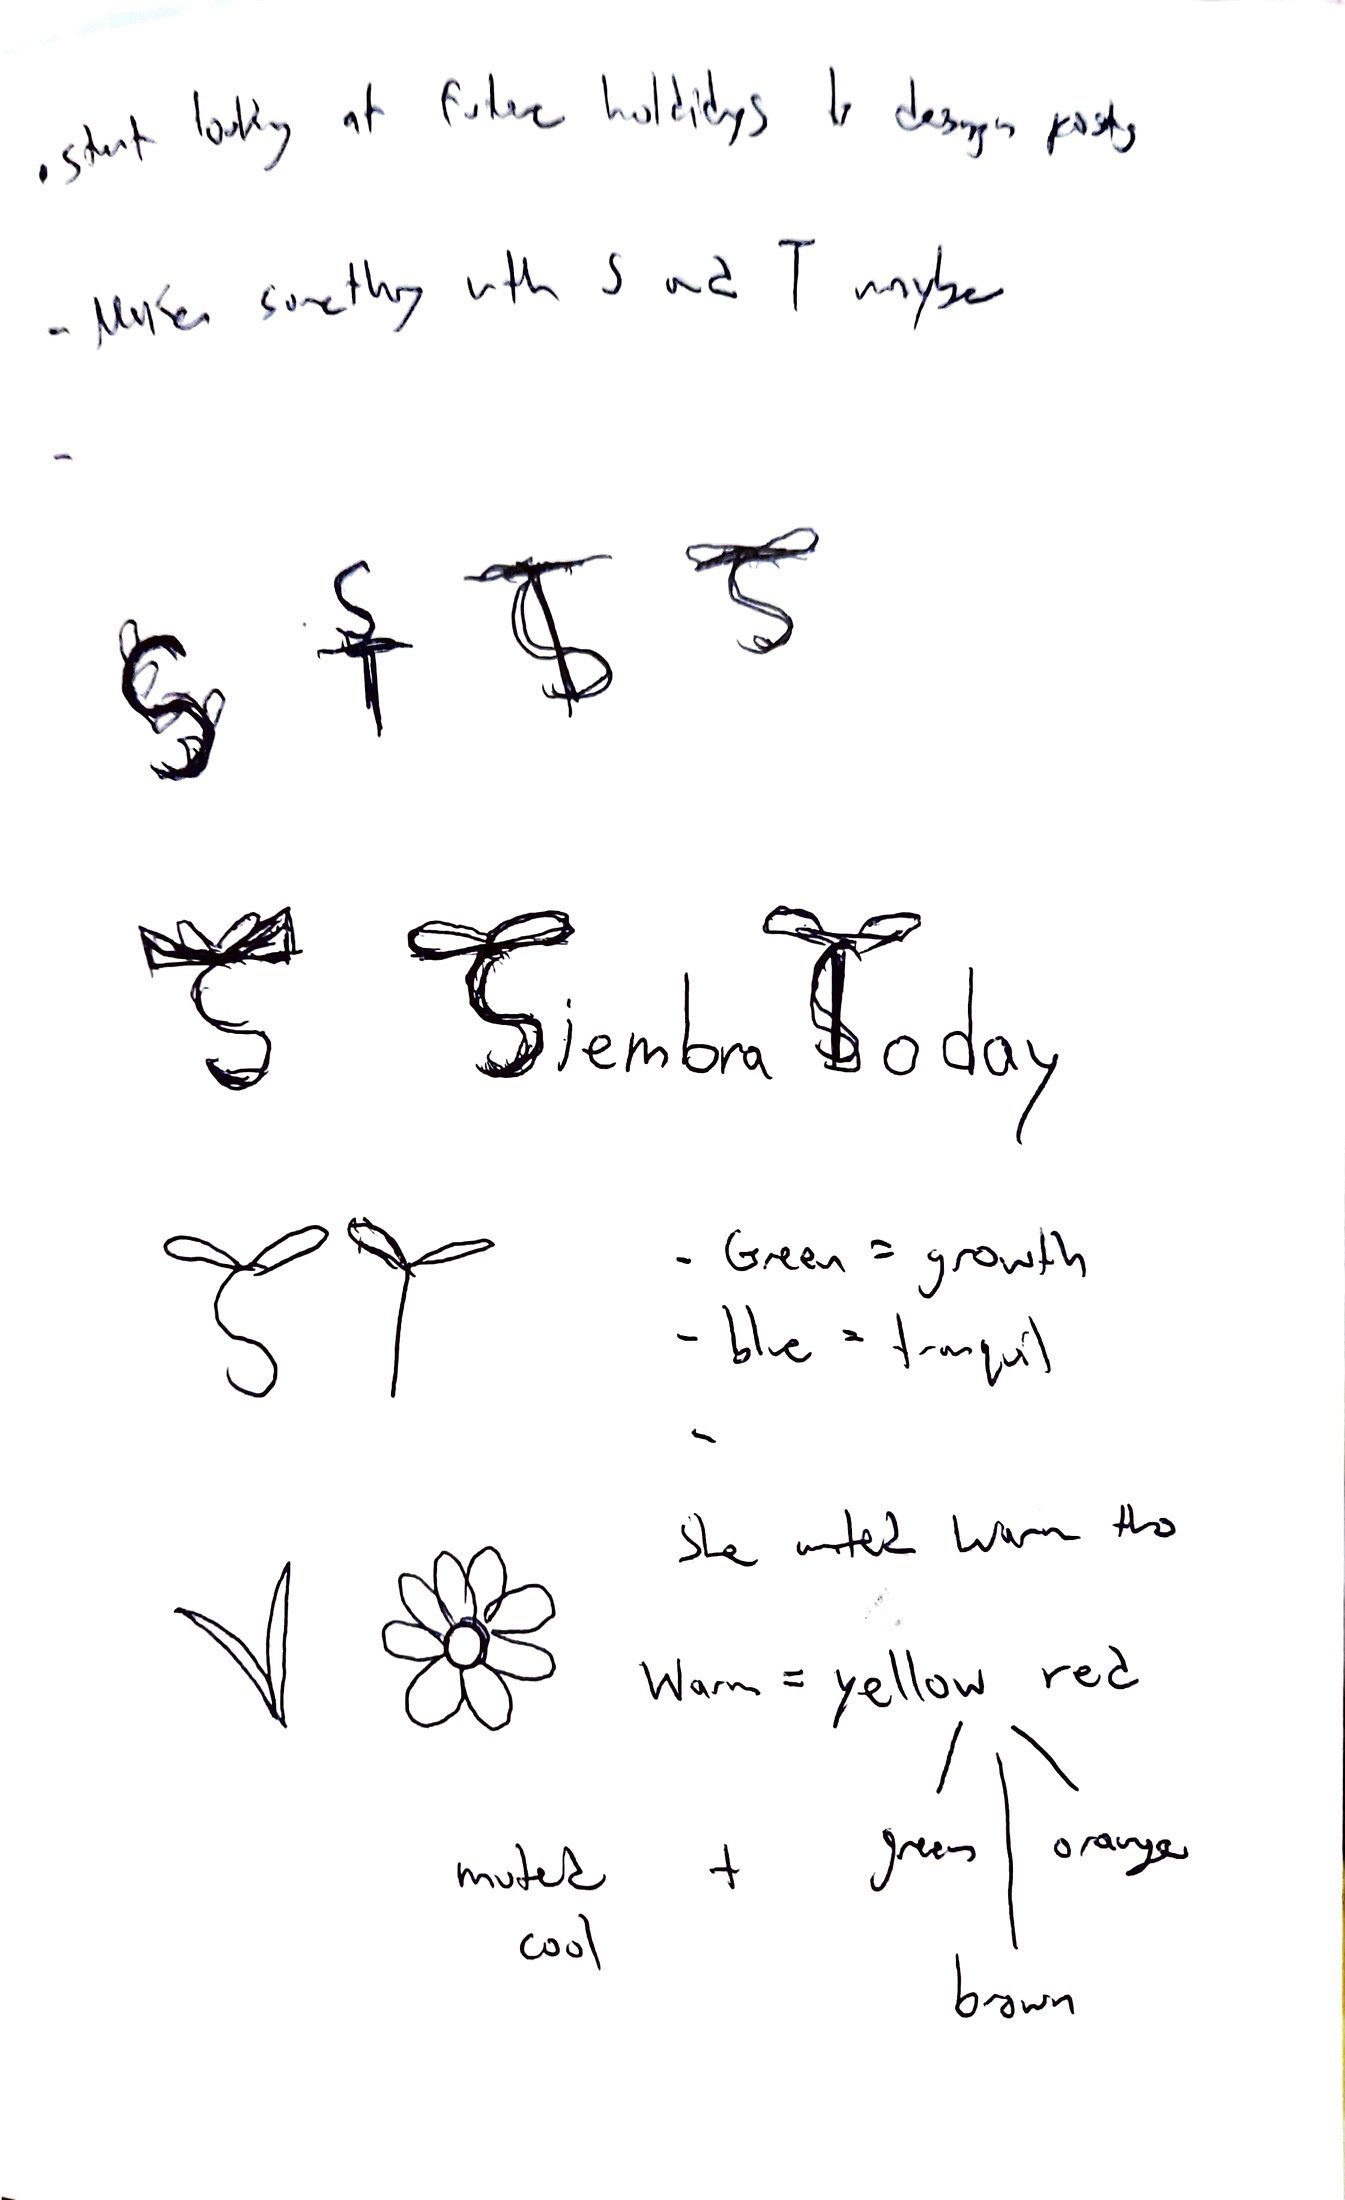 . start looking at future holdidys to design posts
- Maken something with S and T maybe
-
S
S T
S
S
S Siembra Today
S T
- Green = growth
- blue = tranquil
-
She wanted warm tho
Warm = yellow red
muted + green orange
cool
brown